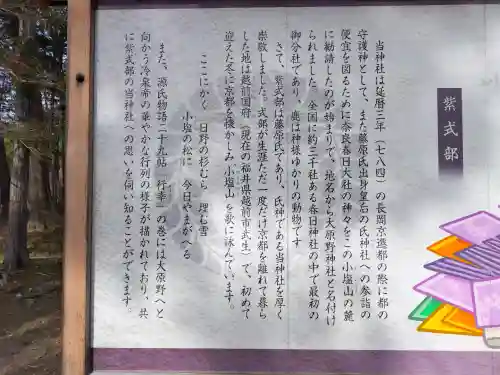 紫式部
当神社は延暦三年(七八四)の長岡京遷都の際に都の
守護神として、また藤原氏出身皇后の氏神社への参詣の
便宜を図るために奈良春日大社の神々をこの小塩山の麓
に勧請したのが始まりで、地名から大原野神社と名付け
られました 全国に約三千社ある春日神社の中で最初の
御分社であり、鹿は神様ゆかりの動物です
さて、紫式部は藤原氏であり、氏神である当神社を厚く
崇敬しました。式部が生涯ただ一度だけ京都を離れて暮ら
した地は越前国府(現在の福井県越前市武生)で、初めて
迎えた冬に京都を懐かしみ小塩山を歌に詠んでいます。
ここにかく 日野の杉むら 埋む雪
小塩の松に 今日やまがへる
また、源氏物語二十九帖「行幸」の巻には大原野へと
向かう冷泉帝の華やかな行列の様子が描かれており、共
に紫式部の当神社への思いを伺い知ることができます。